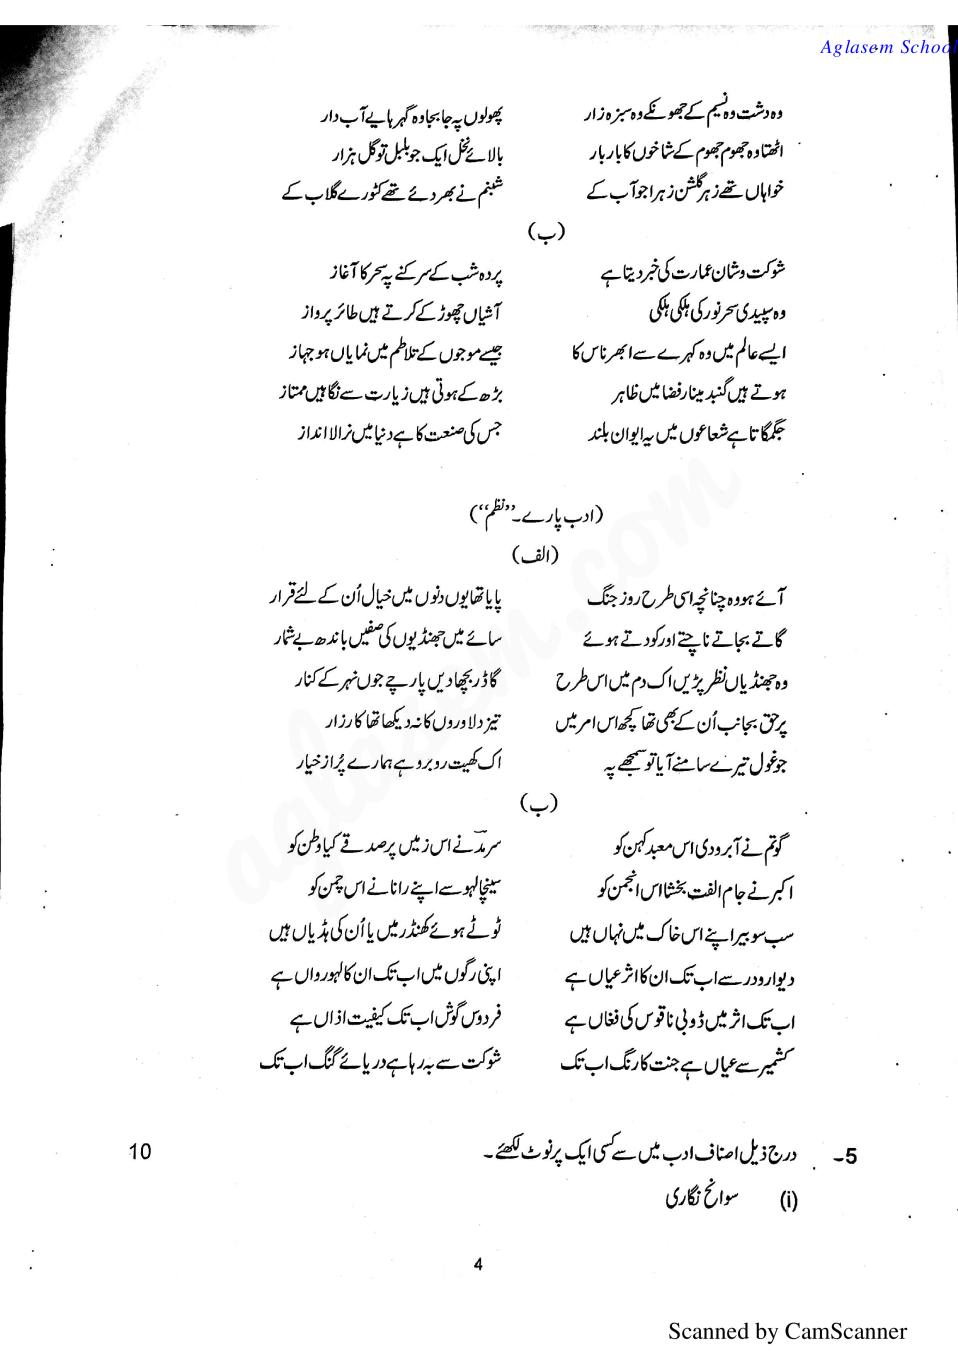 Aglasem School
وہ دشت وہ نسیم کے جھونکے وہ سبزہ زار پھولوں پہ جا بجا وہ گہر ہائے آب دار
اٹھنا وہ جھوم جھوم کے شاخوں کا بار بار بالائے نخل ایک جو بلبل تو گل ہزار
خواہاں تھے زہر گلشن زہرا جو آب کے شبنم نے بھر دئے تھے کٹورے گلاب کے
(ب)
شوکت و شان عمارت کی خبر دیتا ہے پردہ شب کے سرکنے پہ سحر کا آغاز
وہ سپیدی سحر نور کی ہلکی ہلکی آشیاں چھوڑ کے کرتے ہیں طائر پرواز
ایسے عالم میں وہ کہرے سے ابھرنا اس کا جیسے موجوں کے تلاطم میں نمایاں ہو جہاز
ہوتے ہیں گنبد مینار فضا میں ظاہر بڑھ کے ہوتی ہیں زیارت سے نگاہیں ممتاز
جگمگاتا ہے شعاعوں میں یہ ایوان بلند جس کی صنعت کا ہے دنیا میں نرالا انداز
(ادب پارے۔ ”نظم“)
(الف)
آئے ہو وہ چنانچہ اسی طرح روز جنگ پایا تھا یوں دنوں میں خیال اُن کے لئے قرار
گاتے بجاتے ناچتے اور کودتے ہوئے سائے میں جھنڈیوں کی صفیں باندھ بے شمار
وہ جھنڈیاں نظر پڑیں اک دم میں اس طرح گاڈر بچھا دیں پارچے جوں نہر کے کنار
پر حق بجانب اُن کے بھی تھا کچھ اس امر میں تیز دلاوروں کا نہ دیکھا تھا کارزار
جو غول تیرے سامنے آیا تو سمجھے یہ اک کھیت روبرو ہے ہمارے پُر از خیار
(ب)
گوتم نے آبرو دی اس معبد کہن کو سرمدؔ نے اس زمیں پر صدقے کیا وطن کو
اکبر نے جام الفت بخشا اس انجمن کو سینچا لہو سے اپنے رانا نے اس چمن کو
سب سوبیر اپنے اس خاک میں نہاں ہیں ٹوٹے ہوئے کھنڈر میں یا اُن کی ہڈیاں ہیں
دیوار و در سے اب تک ان کا اثر عیاں ہے اپنی رگوں میں اب تک ان کا لہو رواں ہے
اب تک اثر میں ڈوبی ناقوس کی فغاں ہے فردوس گوش اب تک کیفیت اذاں ہے
کشمیر سے عیاں ہے جنت کا رنگ اب تک شوکت سے بہ رہا ہے دریائے گنگ اب تک
5- درج ذیل اصناف ادب میں سے کسی ایک پر نوٹ لکھئے۔ 10
(i) سوانح نگاری
4
Scanned by CamScanner
aglasem.com